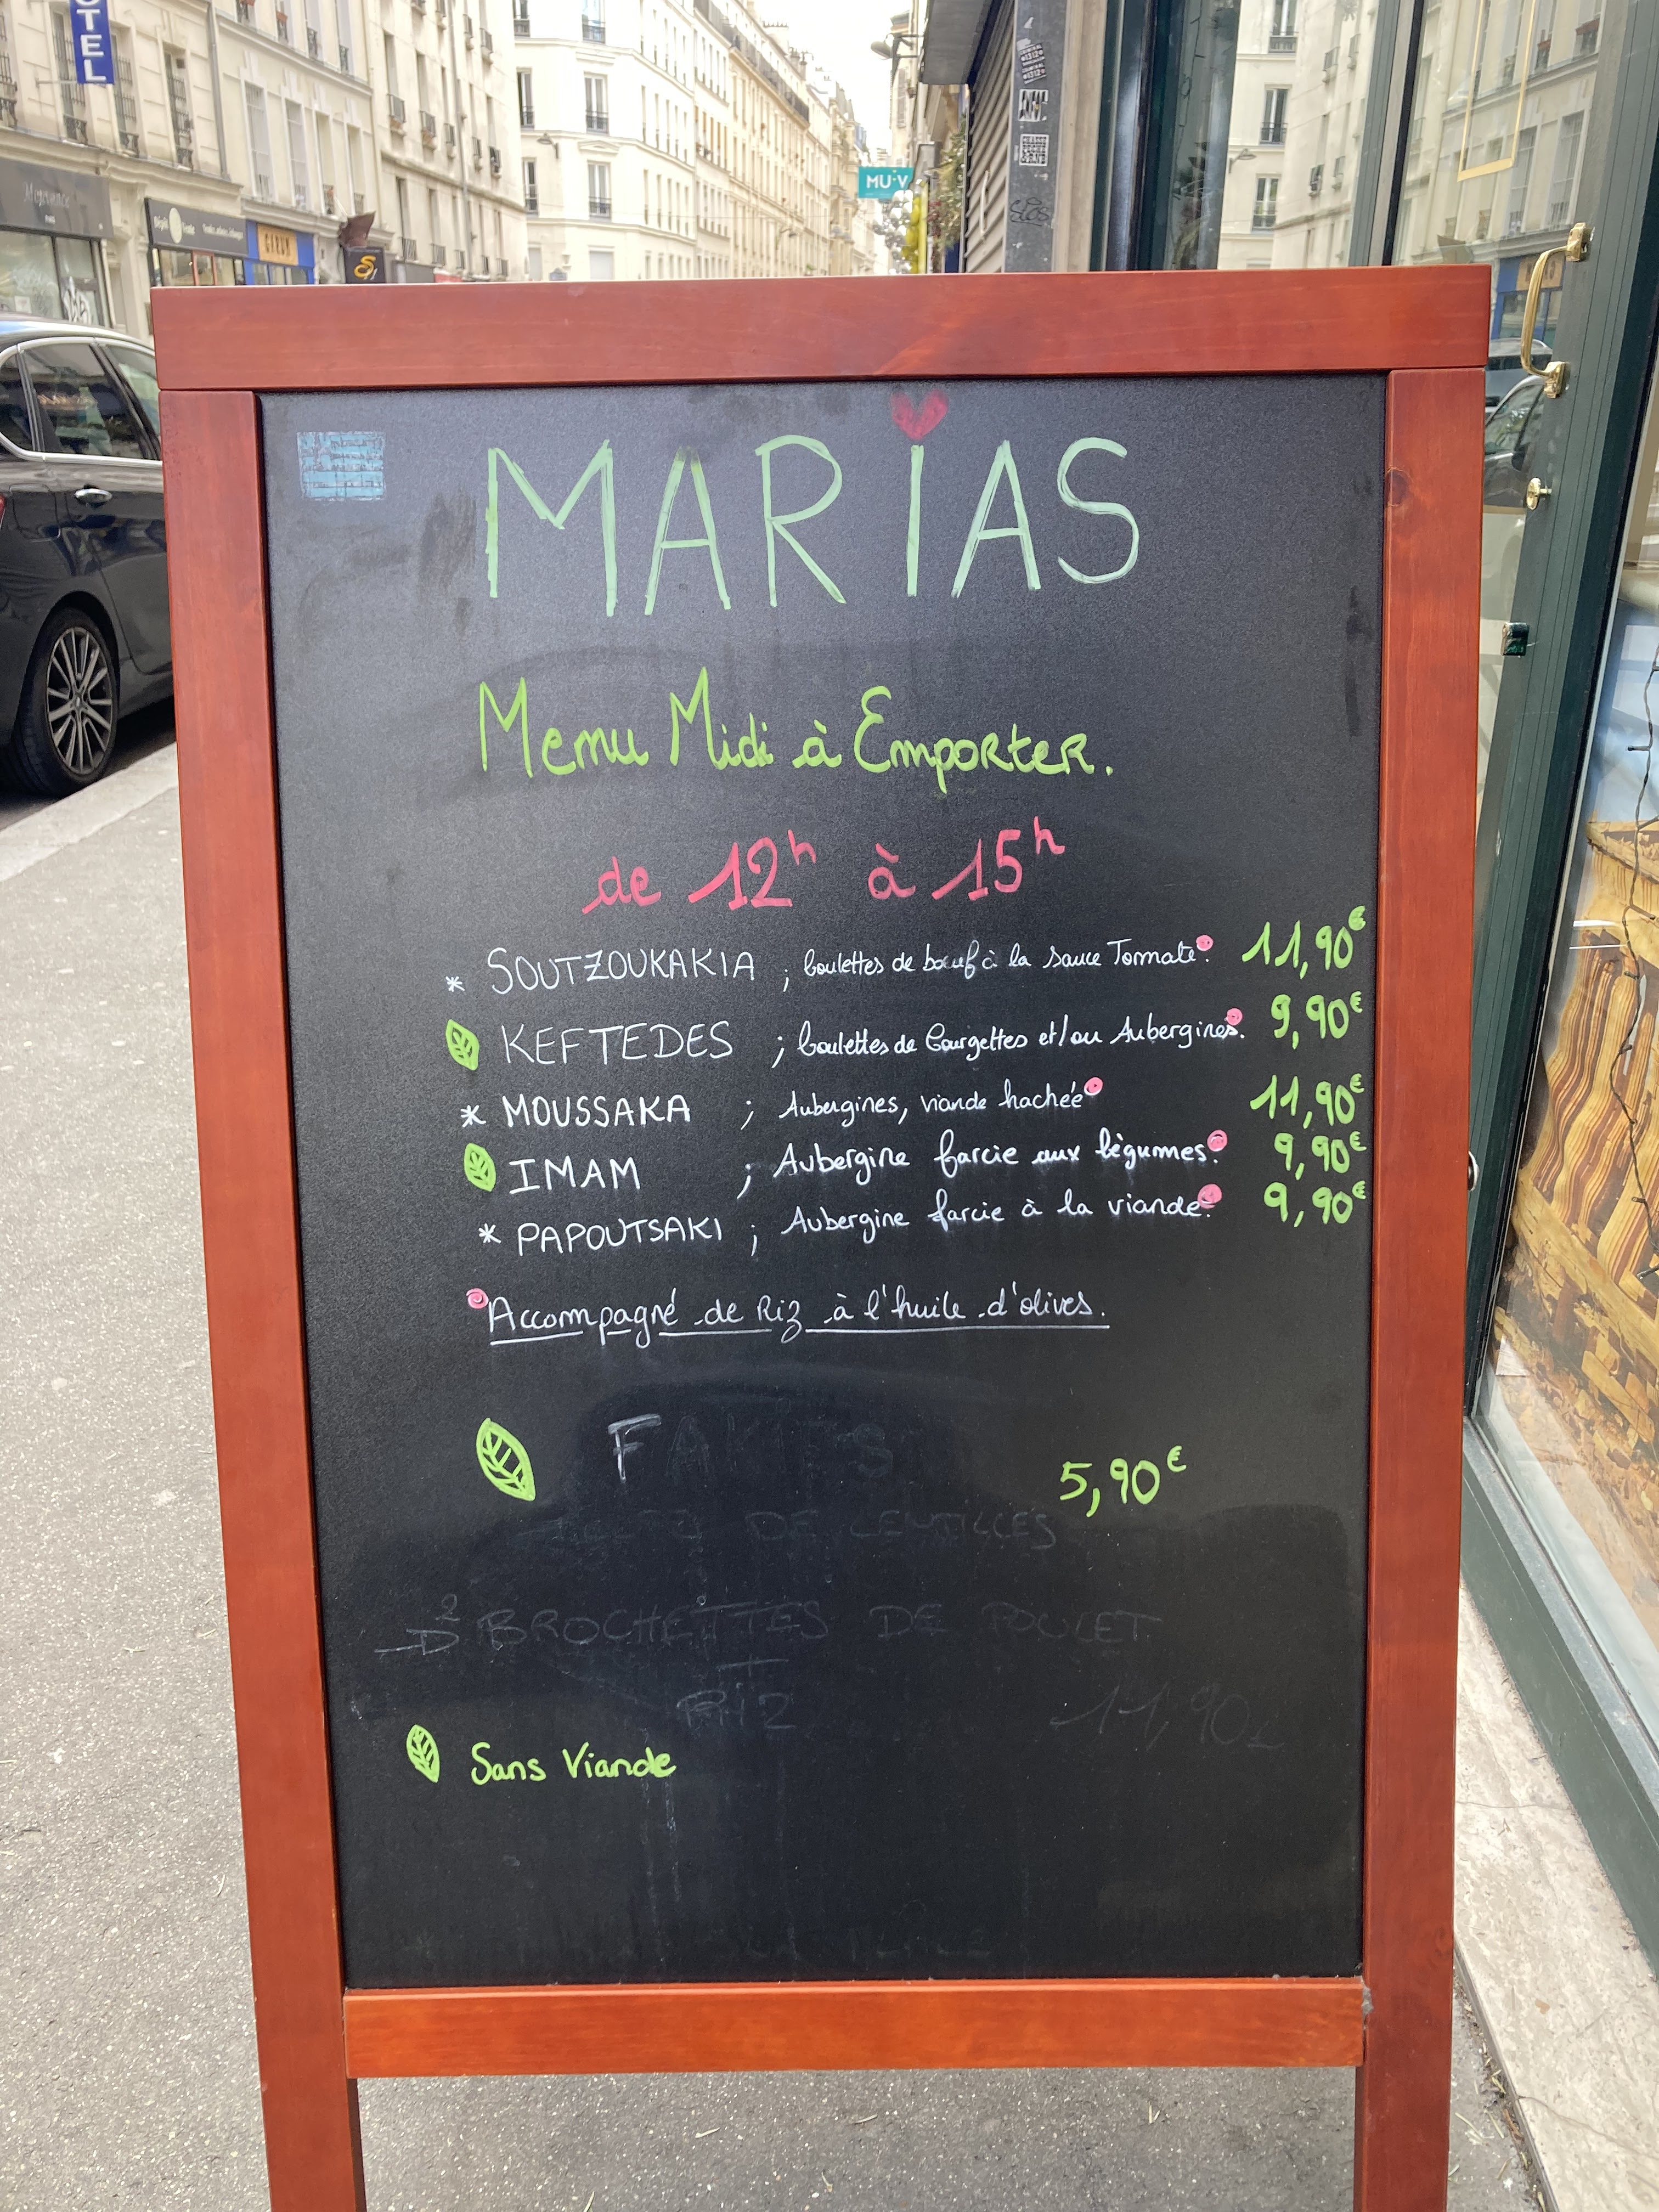 OTEL
MU·V
MARIAS
Menu Midi à Emporter.
de 12h à 15h
* SOUTZOUKAKIA ; boulettes de bœuf à la sauce Tomate. 11,90€
KEFTEDES ; boulettes de Courgettes et/ou Aubergines. 9,90€
* MOUSSAKA ; Aubergines, viande hachée 11,90€
IMAM ; Aubergine farcie aux légumes. 9,90€
* PAPOUTSAKI ; Aubergine farcie à la viande. 9,90€
Accompagné de Riz à l'huile d'olives.
FAKIES 5,90€
DE LENTILLES
2 BROCHETTES DE POULET
+
RIZ 11,90
Sans Viande